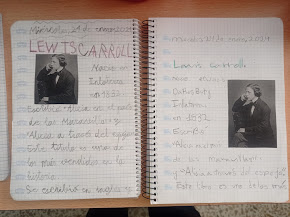 Miércoles, 24 de enero 2024
LEWIS CARROLL
Nació en
Inglaterra
en 1832
Escribió "Alicia en el país
de las Maravillas" y
"Alicia a través del espejo"
Este título es uno de
los más vendidos en la
historia.
Se escribió en inglés y
enero 2024
Lewis Carroll
Nació
Inglaterra
en 1832
Escribió
Alicia en el
de las maravillas y
"Alicia a través del espejo"
Este libro es uno de los más